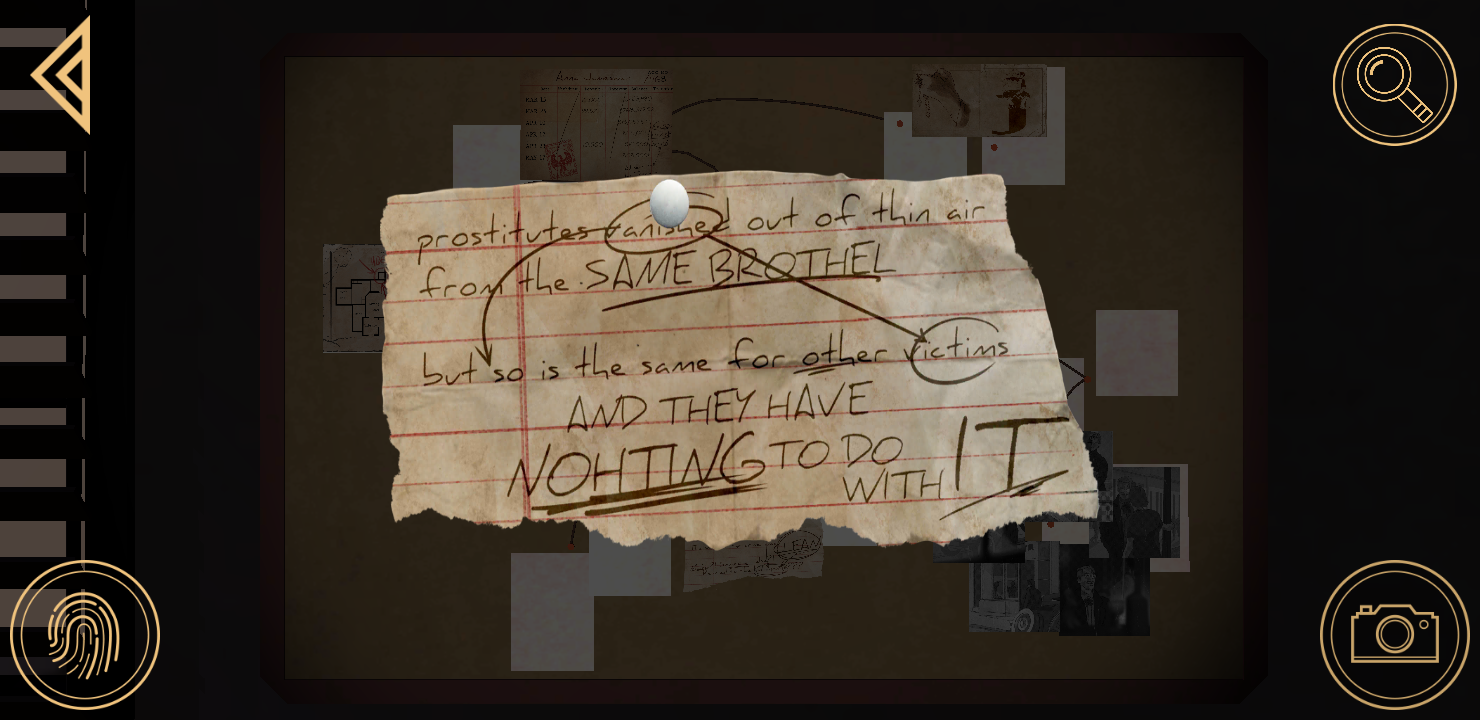 prostitutes vanished out of thin air
from the SAME BROTHEL
but so is the same for other victims
AND THEY HAVE
NOHTING TO DO
WITH IT
CLEAN